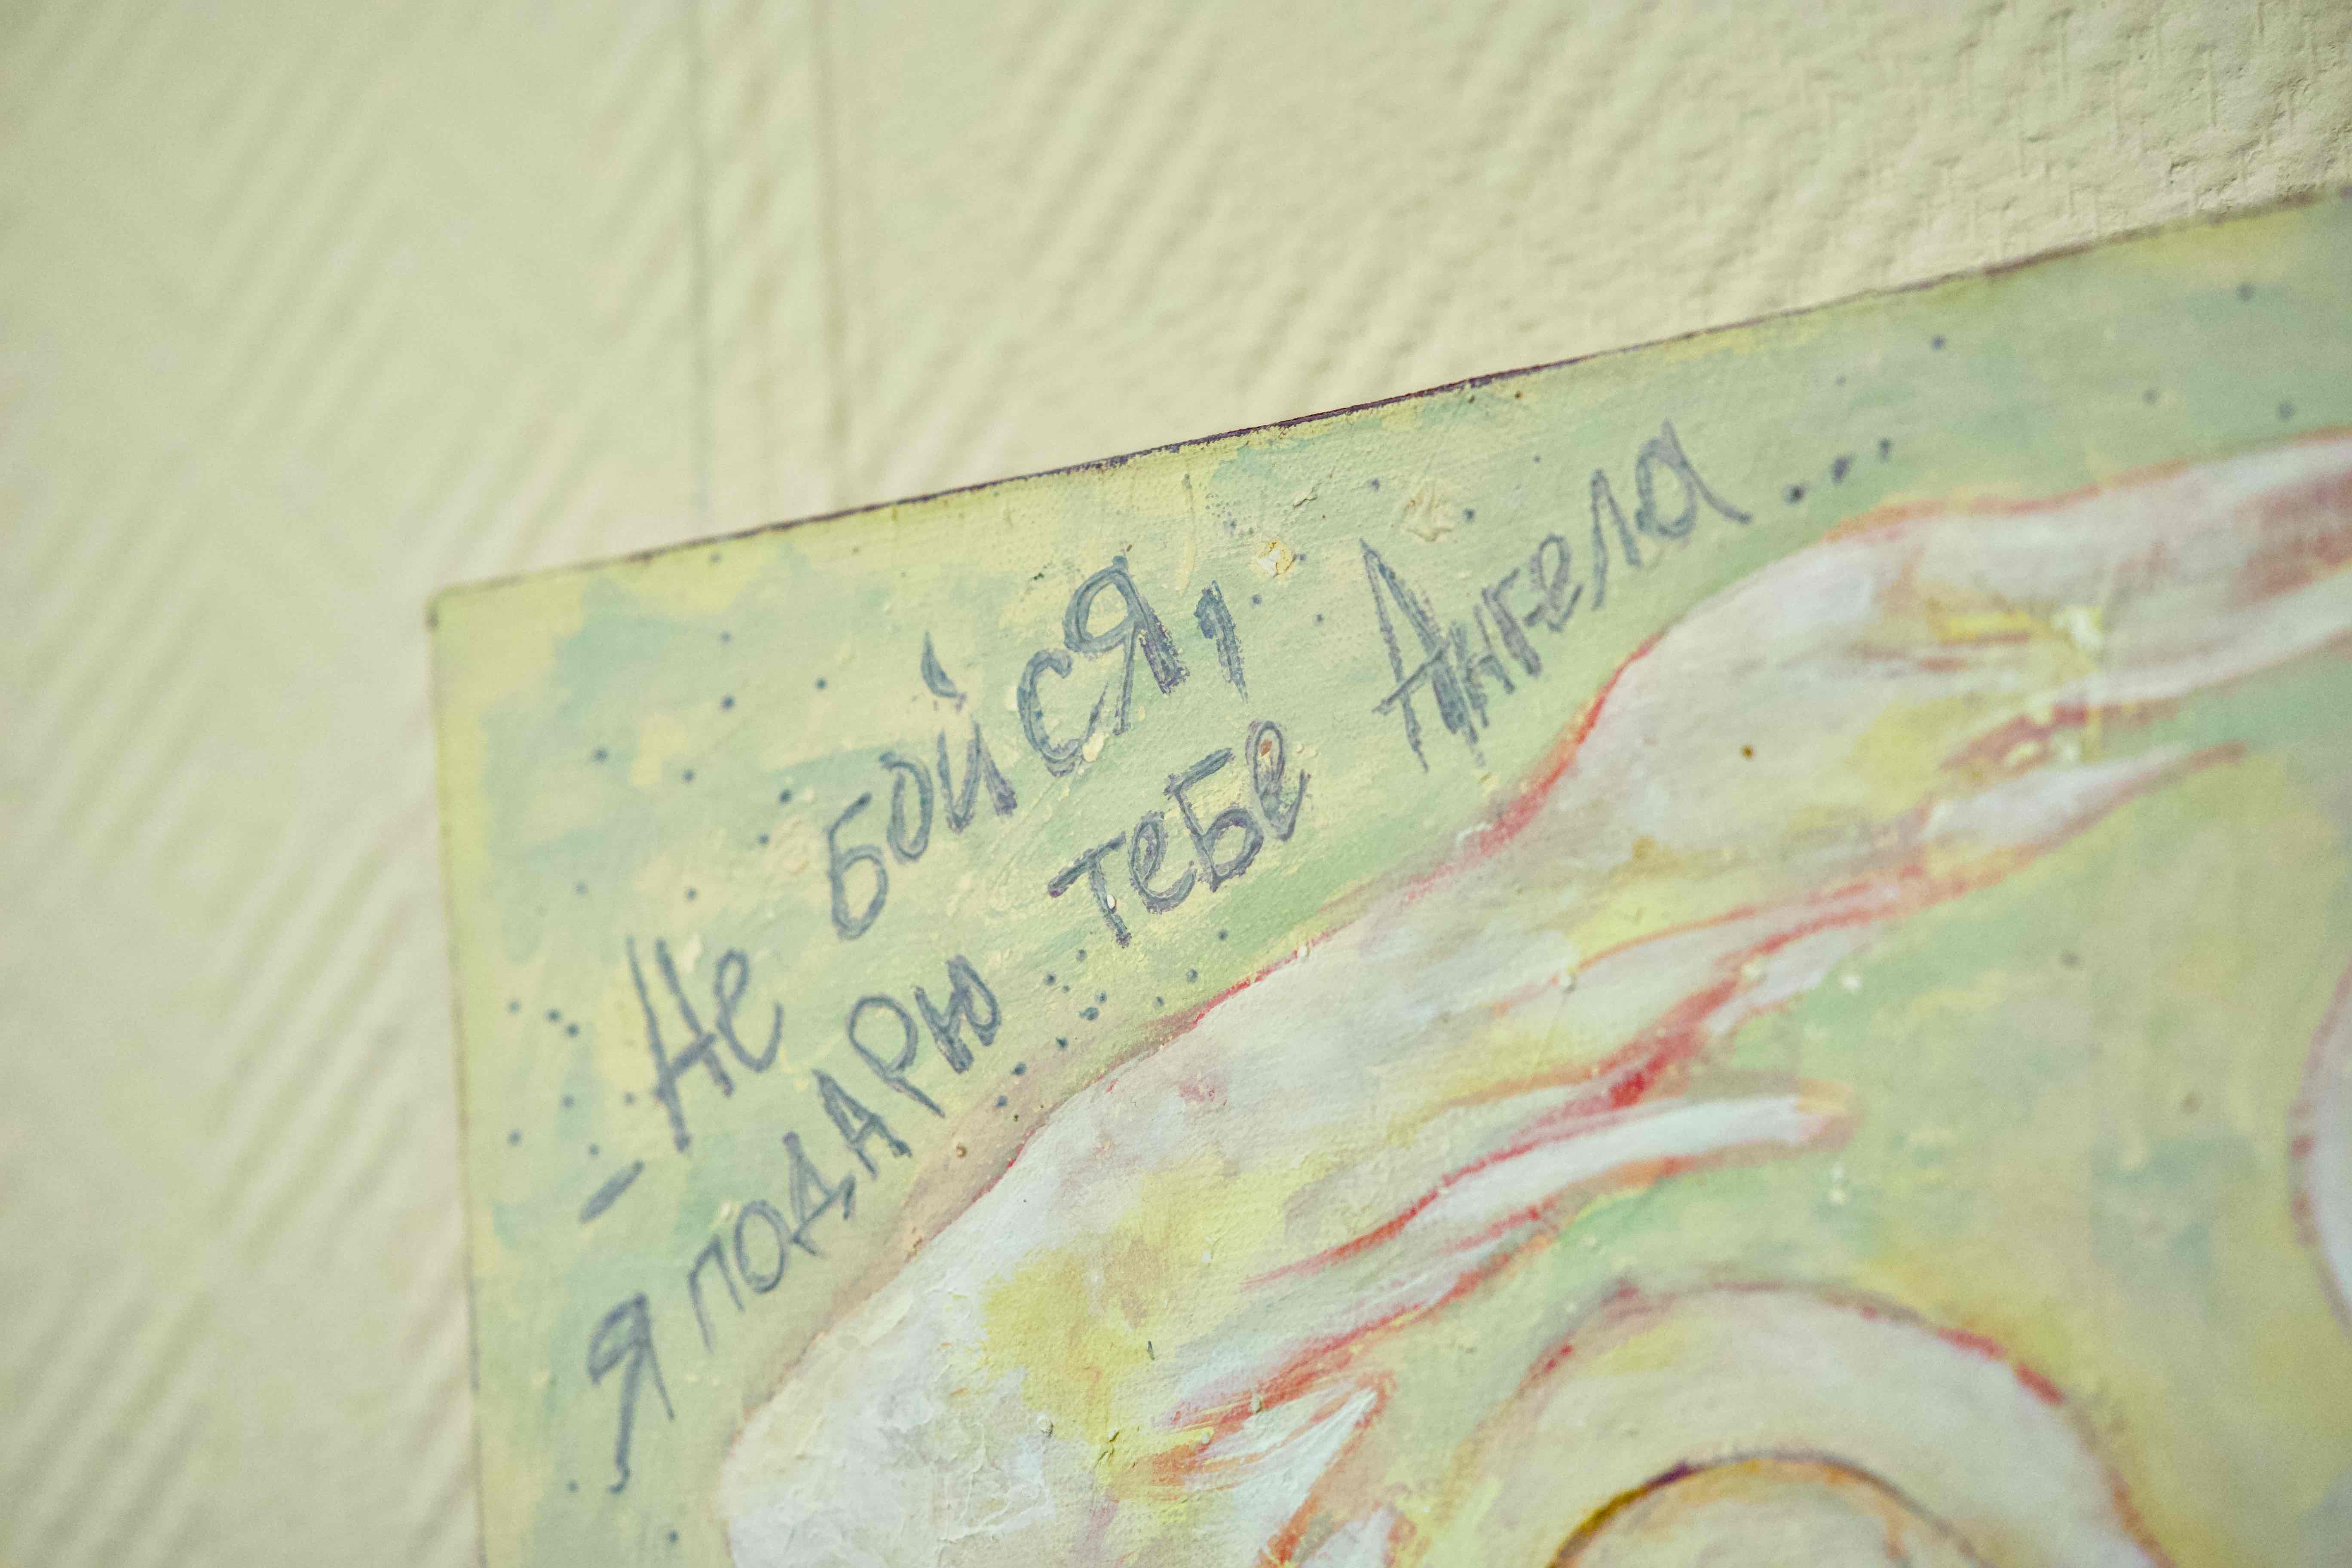 - Не бойся,
Я подарю тебе Ангела...